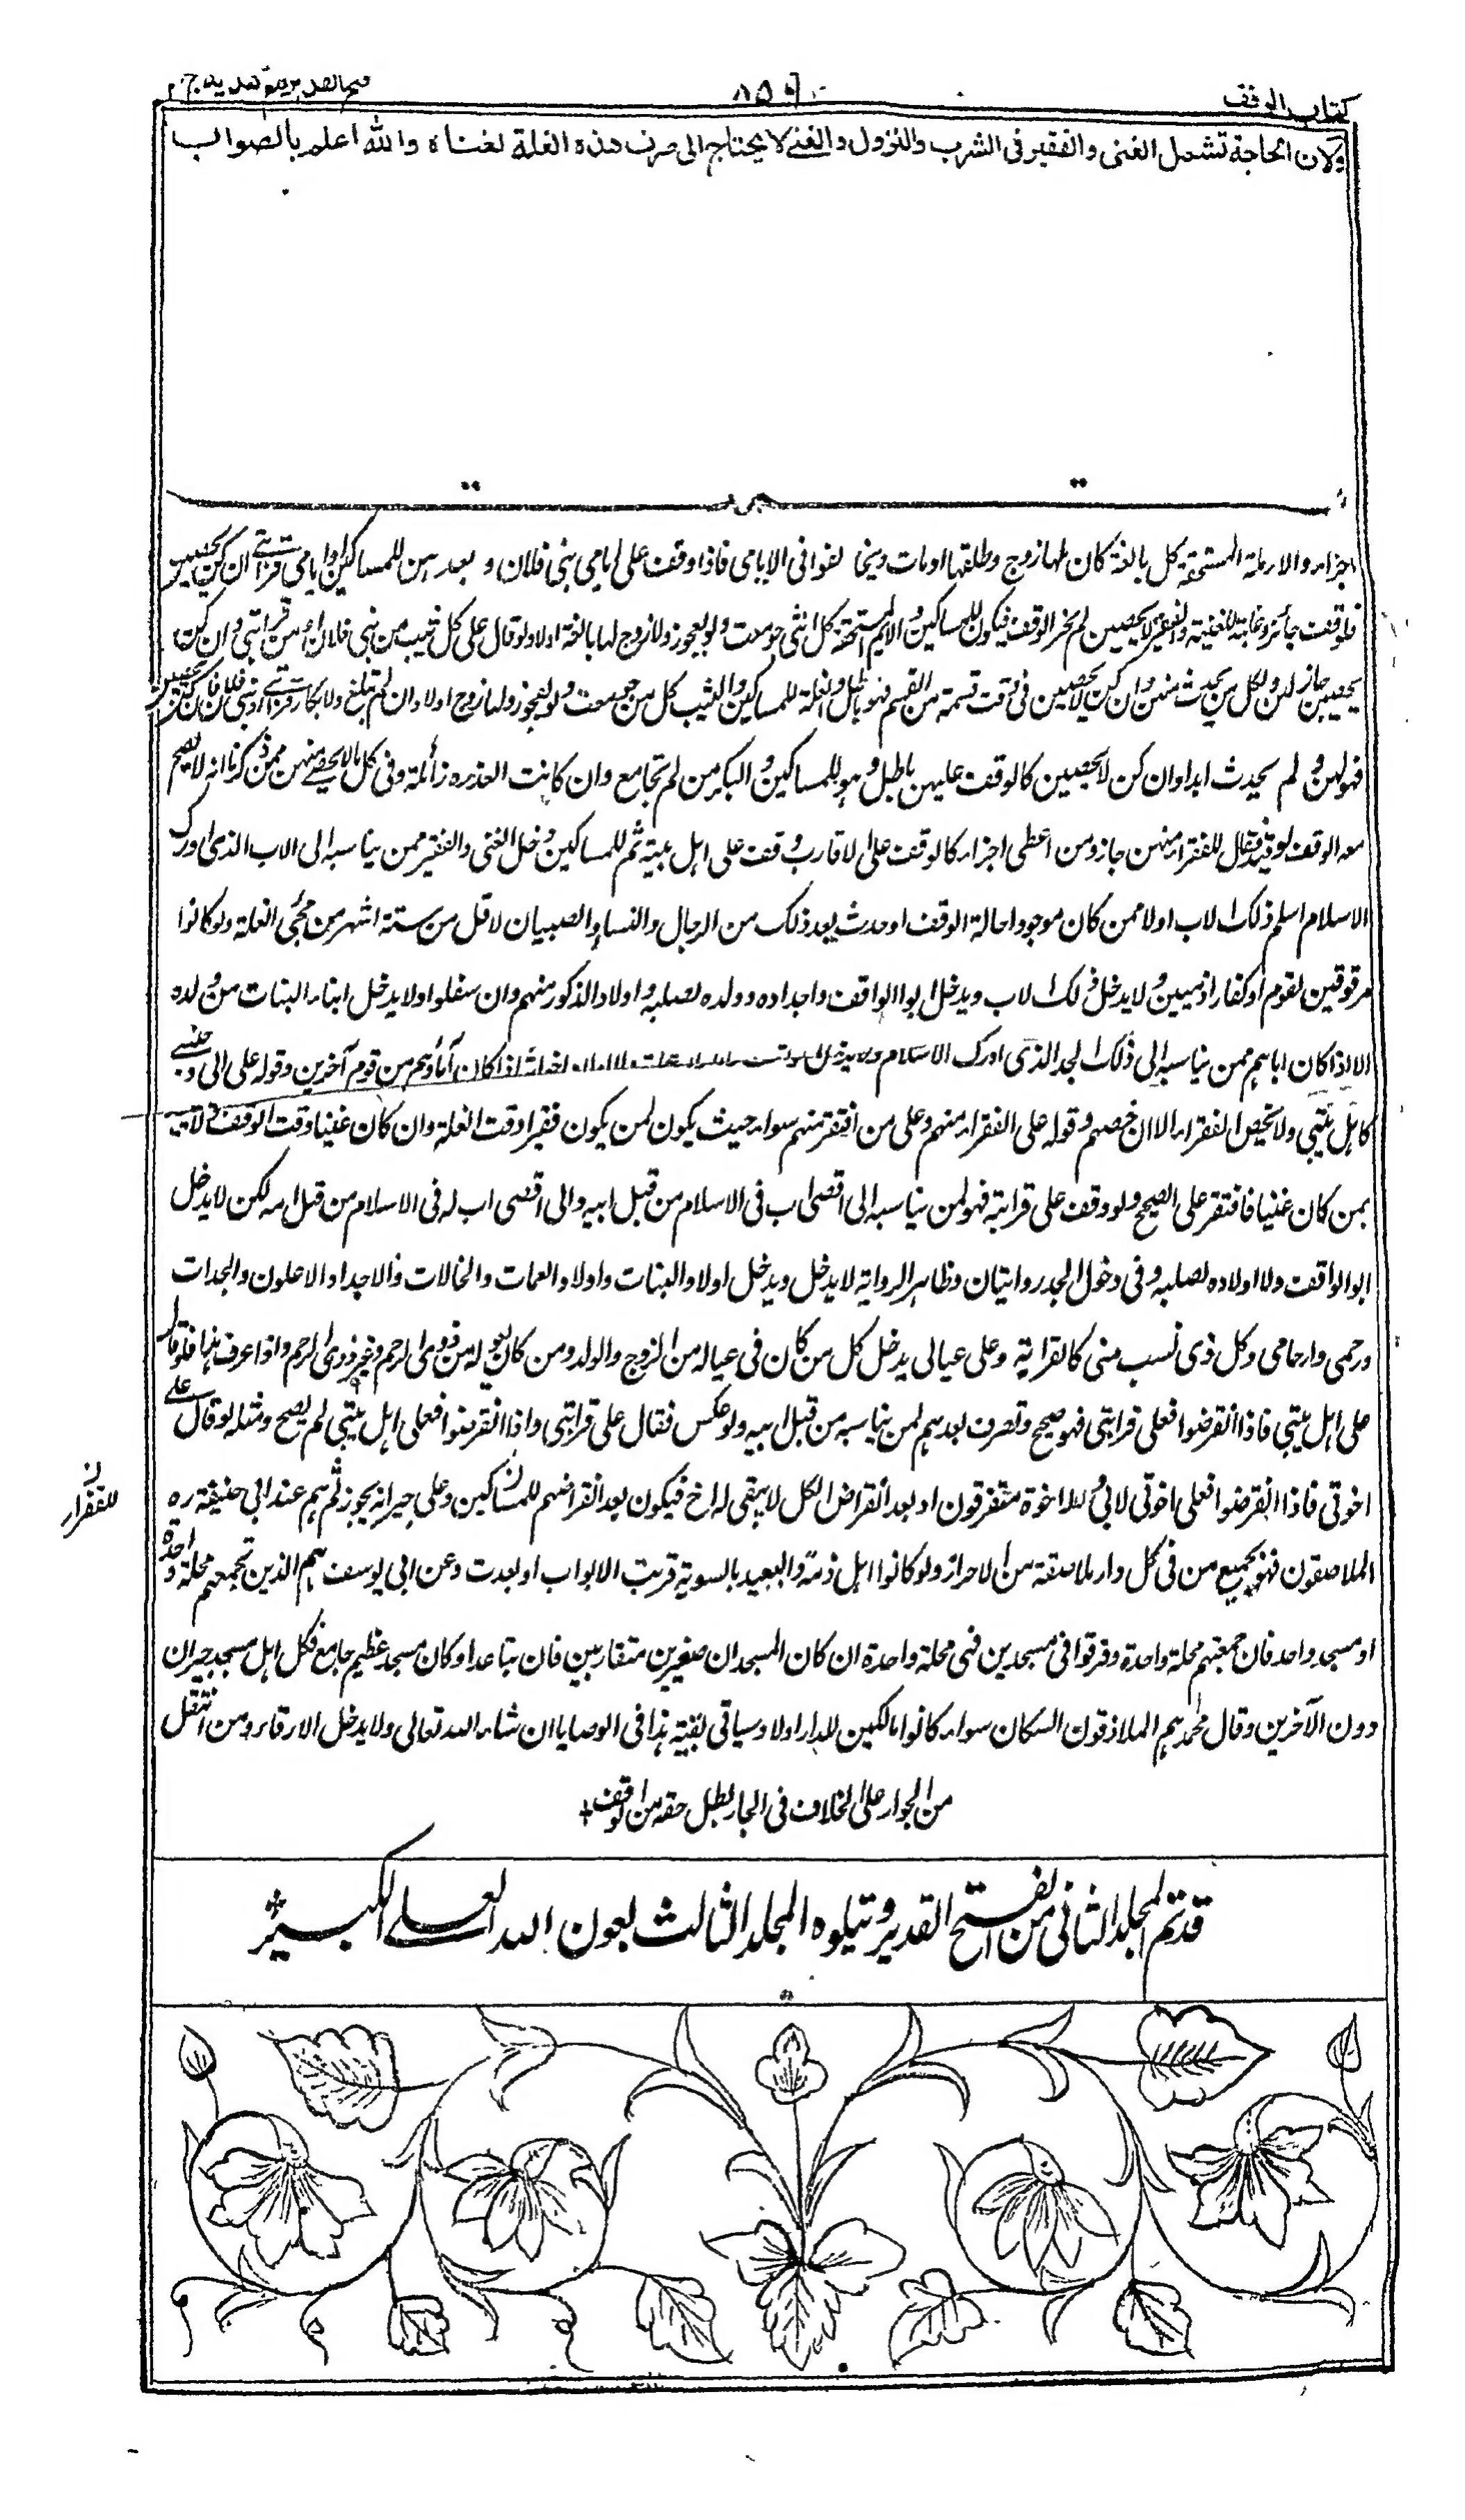 كتاب الوقف
٨٥٦
فتح القدير مع هدايه ج ٢
ولان الحاجة تشمل الغنى والفقير فى الشرب والنزول والغنى لا يحتاج الى صرف هذه الغلة لغناه والله اعلم بالصواب
اجزاه والارملة المستحقة كل بالغة كان لها زوج وطلقها او مات وينحا لفوا فى الايامى فاذا وقف على ايامى بنى فلان و بعد هن للمساكين او ايامى قرابتى ان كن يحصين
فالوقف جائز وغلبة للغنية والفقيرة لم يجز الوقف فيكون للمساكين والايم المستحقة كل انثى جومعت ولو بفجور ولا زوج لها بالغة اولا ولو قال على كل ثيب من بنى فلان او من قرابتى وان كن
يحصين جاز لهن ولكل من يحدث منهن وان كن لا يحصين فى وقت قسمة من القسم فهو باطل والغلة للمساكين والثيب كل من جومعت ولو بفجور ولها زوج اولا وان لم تبلغ ولا بكار قرابتى او بنى فلان فان كن يحصين
فهو لهن ولم يحدث ابدا وان كن لا يحصين كالوقف عليهن باطل وهو للمساكين والبكر من لم تجامع وان كانت العذره زائلة وفى كل ما لا يحصى منهن ممن ذكرنا انه لا يصح
معه الوقف لو قيد فقال للفقراء منهن جاز ومن اعطى اجزاه كالوقف على الاقارب وقف على اهل بيته ثم للمساكين دخل الغنى والفقير ممن يناسبه الى الاب الذى ادرك
الاسلام اسلم ذلك الاب اولا ممن كان موجودا حالة الوقف او حدث بعد ذلك من الرجال والنساء والصبيان لاقل من ستة اشهر من مجئ الغلة ولو كانوا
مرقوقين لقوم او كفارا ذميين ولا يدخل ذلك الاب ويدخل ابوا الواقف واجداده وولده لصلبه واولاد الذكور منهم وان سفلوا ولا يدخل ابناء البنات من ولده
الا اذا كان اباهم ممن يناسبه الى ذلك الجد الذى ادرك الاسلام ولا يدخل اذا كان آباؤهم من قوم آخرين وقوله على الى وجنسى
كاهل بيتى ولا تخص الفقراء الا ان خصهم وقوله على الفقراء منهم وعلى من افتقر منهم سواء حيث يكون لمن يكون فقيرا وقت الغلة وان كان غنيا وقت الوقف
بمن كان غنيا فافتقر على الصحيح ولو وقف على قرابته فهو لمن يناسبه الى اقصى اب فى الاسلام من قبل ابيه والى اقصى اب له فى الاسلام من قبل امه لكن لا يدخل
ابو الواقف ولا اولاده لصلبه وفى دخول الجد روايتان وظاهر الرواية لا يدخل ويدخل اولاد البنات واولاد العمات والخالات والاجداد الاعلون والجدات
ورحمى وارحامى وكل ذى نسب منى كالقرابة وعلى عيالى يدخل كل من كان فى عياله من الزوج والولد ومن كان يعوله من ذوى الرحم وغير ذوى الرحم واذا عرف هذا فلو قال
على اهل بيتى فاذا انقرضوا فعلى قرابتى فهو صحيح وتصرف بعدهم لمن يناسبه من قبل ابيه ولو عكس فقال على قرابتى واذا انقرضوا فعلى اهل بيتى لم يصح ومثله لو قال على
اخوتى فاذا انقرضوا فعلى اخوتى لابى وله اخوة متفرقون اذ بعد انقراض الكل لا يبقى له اخ فيكون بعد انقراضهم للمساكين وعلى جيرانه يجوز ثم هم عند ابى حنيفة ره
للفقراء ن
الملاصقون فهو لجميع من فى كل دار ملاصقة من الاحرار ولو كانوا اهل ذمة والبعيد بالسوية قربت الابواب او بعدت وعن ابى يوسف هم الذين تجمعهم محلة واحدة
او مسجد واحد فان جمعتهم محلة واحدة وفرقوا فى مسجدين فهى محلة واحدة ان كان المسجدان صغيرين متقاربين فان تباعدا وكان مسجد عظيم جامع فكل اهل مسجد جيران
دون الآخرين وقال محمد هم الملازقون السكان سواء كانوا مالكين للدار اولا وسياتى بقية هذا فى الوصايا ان شاء الله تعالى ولا يدخل الارقاء ومن انتقل
من الجوار على الخلاف فى الجار بطل حقه من الوقف
قد تم المجلد الثانى من الفتح القدير ويتلوه المجلد الثالث بعون الله العلى الكبير